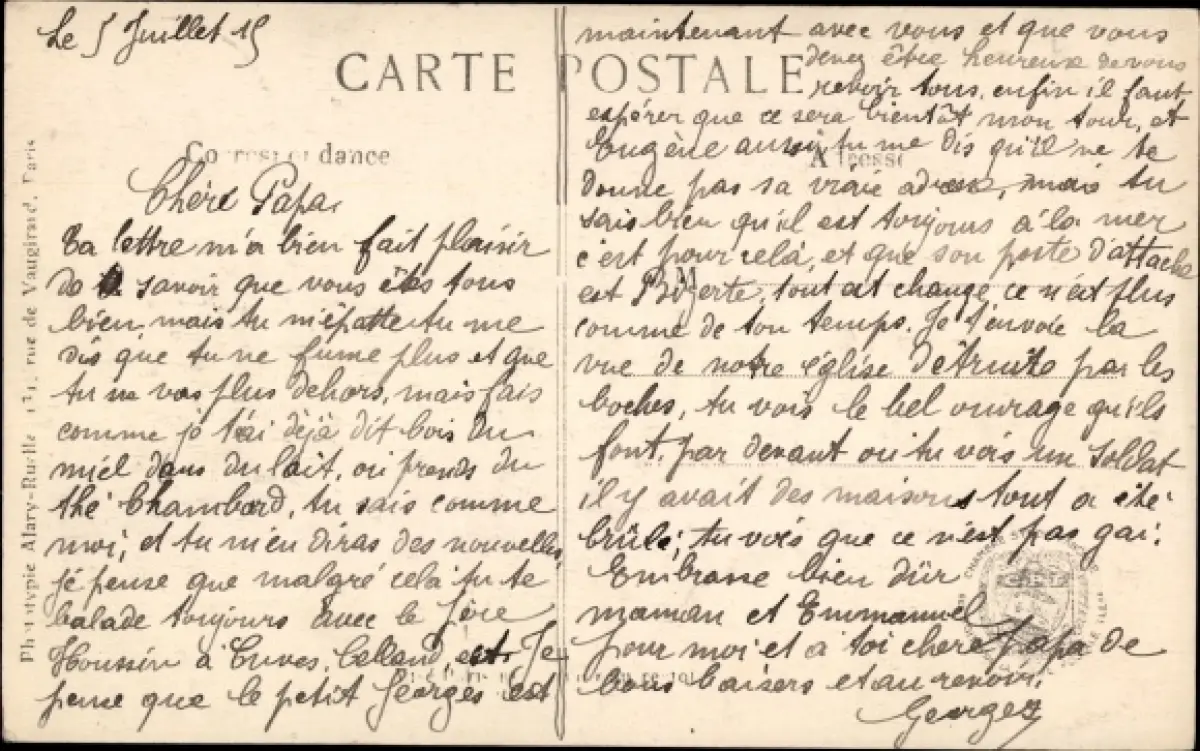 Le 5 Juillet 15
CARTE POSTALE
Correspondance
Chère Papa,
Ta lettre m'a bien fait plaisir
de savoir que vous êtes tous
bien, mais tu m'épatte tu me
dis que tu ne fume plus et que
tu ne vas plus dehors, mais fais
comme je t'ai déjà dit bois du
miel dans du lait, ou prends du
thé Chambard, tu sais comme
moi, et tu m'en diras des nouvelles,
je pense que malgré cela tu te
balade toujours avec le Père
à Cuves, Je
pense que le petit Georges est
maintenant avec vous et que vous
devez être heureux de vous
revoir tous, enfin il faut
espérer que ce sera bientôt mon tour, et
Eugène aussi, tu me dis qu'il ne te
donne pas sa vraie adresse, mais tu
sais bien qu'il est toujours à la mer
c'est pour celà, et que son porte d'attache
est Bizerte, tout est changé, ce n'est plus
comme de ton temps. Je t'envoie la
vue de notre église détruite par les
boches, tu vois le bel ouvrage qu'ils
font, par devant ou tu vois un soldat
il y avait des maisons tout a été
brûlé, tu vois que ce n'est pas gai.
Embrasse bien dür
maman et Emmanuel
pour moi et à toi chere papa de
bons baisers et au revoir.
Georges
Adresse
Phototypie Alary-Ruelle, rue de Vaugirard, Paris